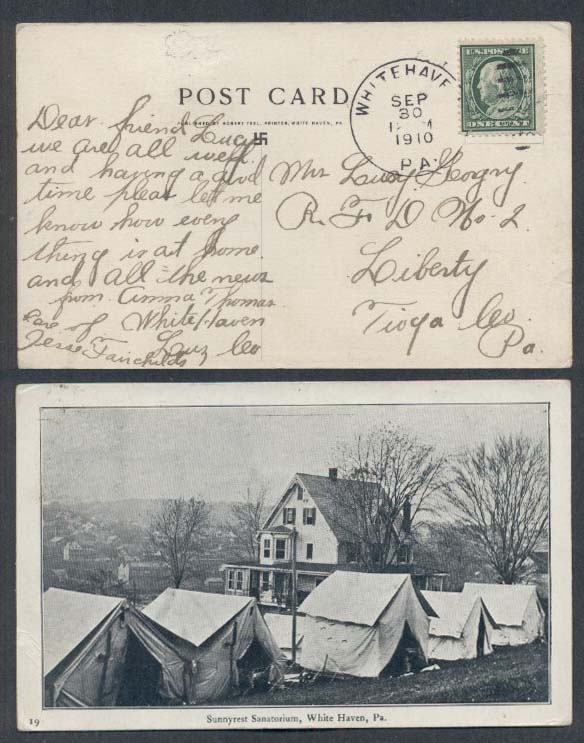 POST CARD
PUBLISHED BY ROBERT FEEL, PRINTER, WHITE HAVEN, PA.
WHITEHAVE
SEP
30
1910
PA.
U.S. POSTAGE
ONE CENT
Dear friend Lucy
we are all well
and having a good
time pleas let me
know how every
thing is at home
and all the news
from Amma Thomas
Care of White Haven
Jesse Fairchilds Luz Co
Lucy
R. F. D. No. 2.
Liberty
Tioga Co.
Pa.
19
Sunnyrest Sanatorium, White Haven, Pa.